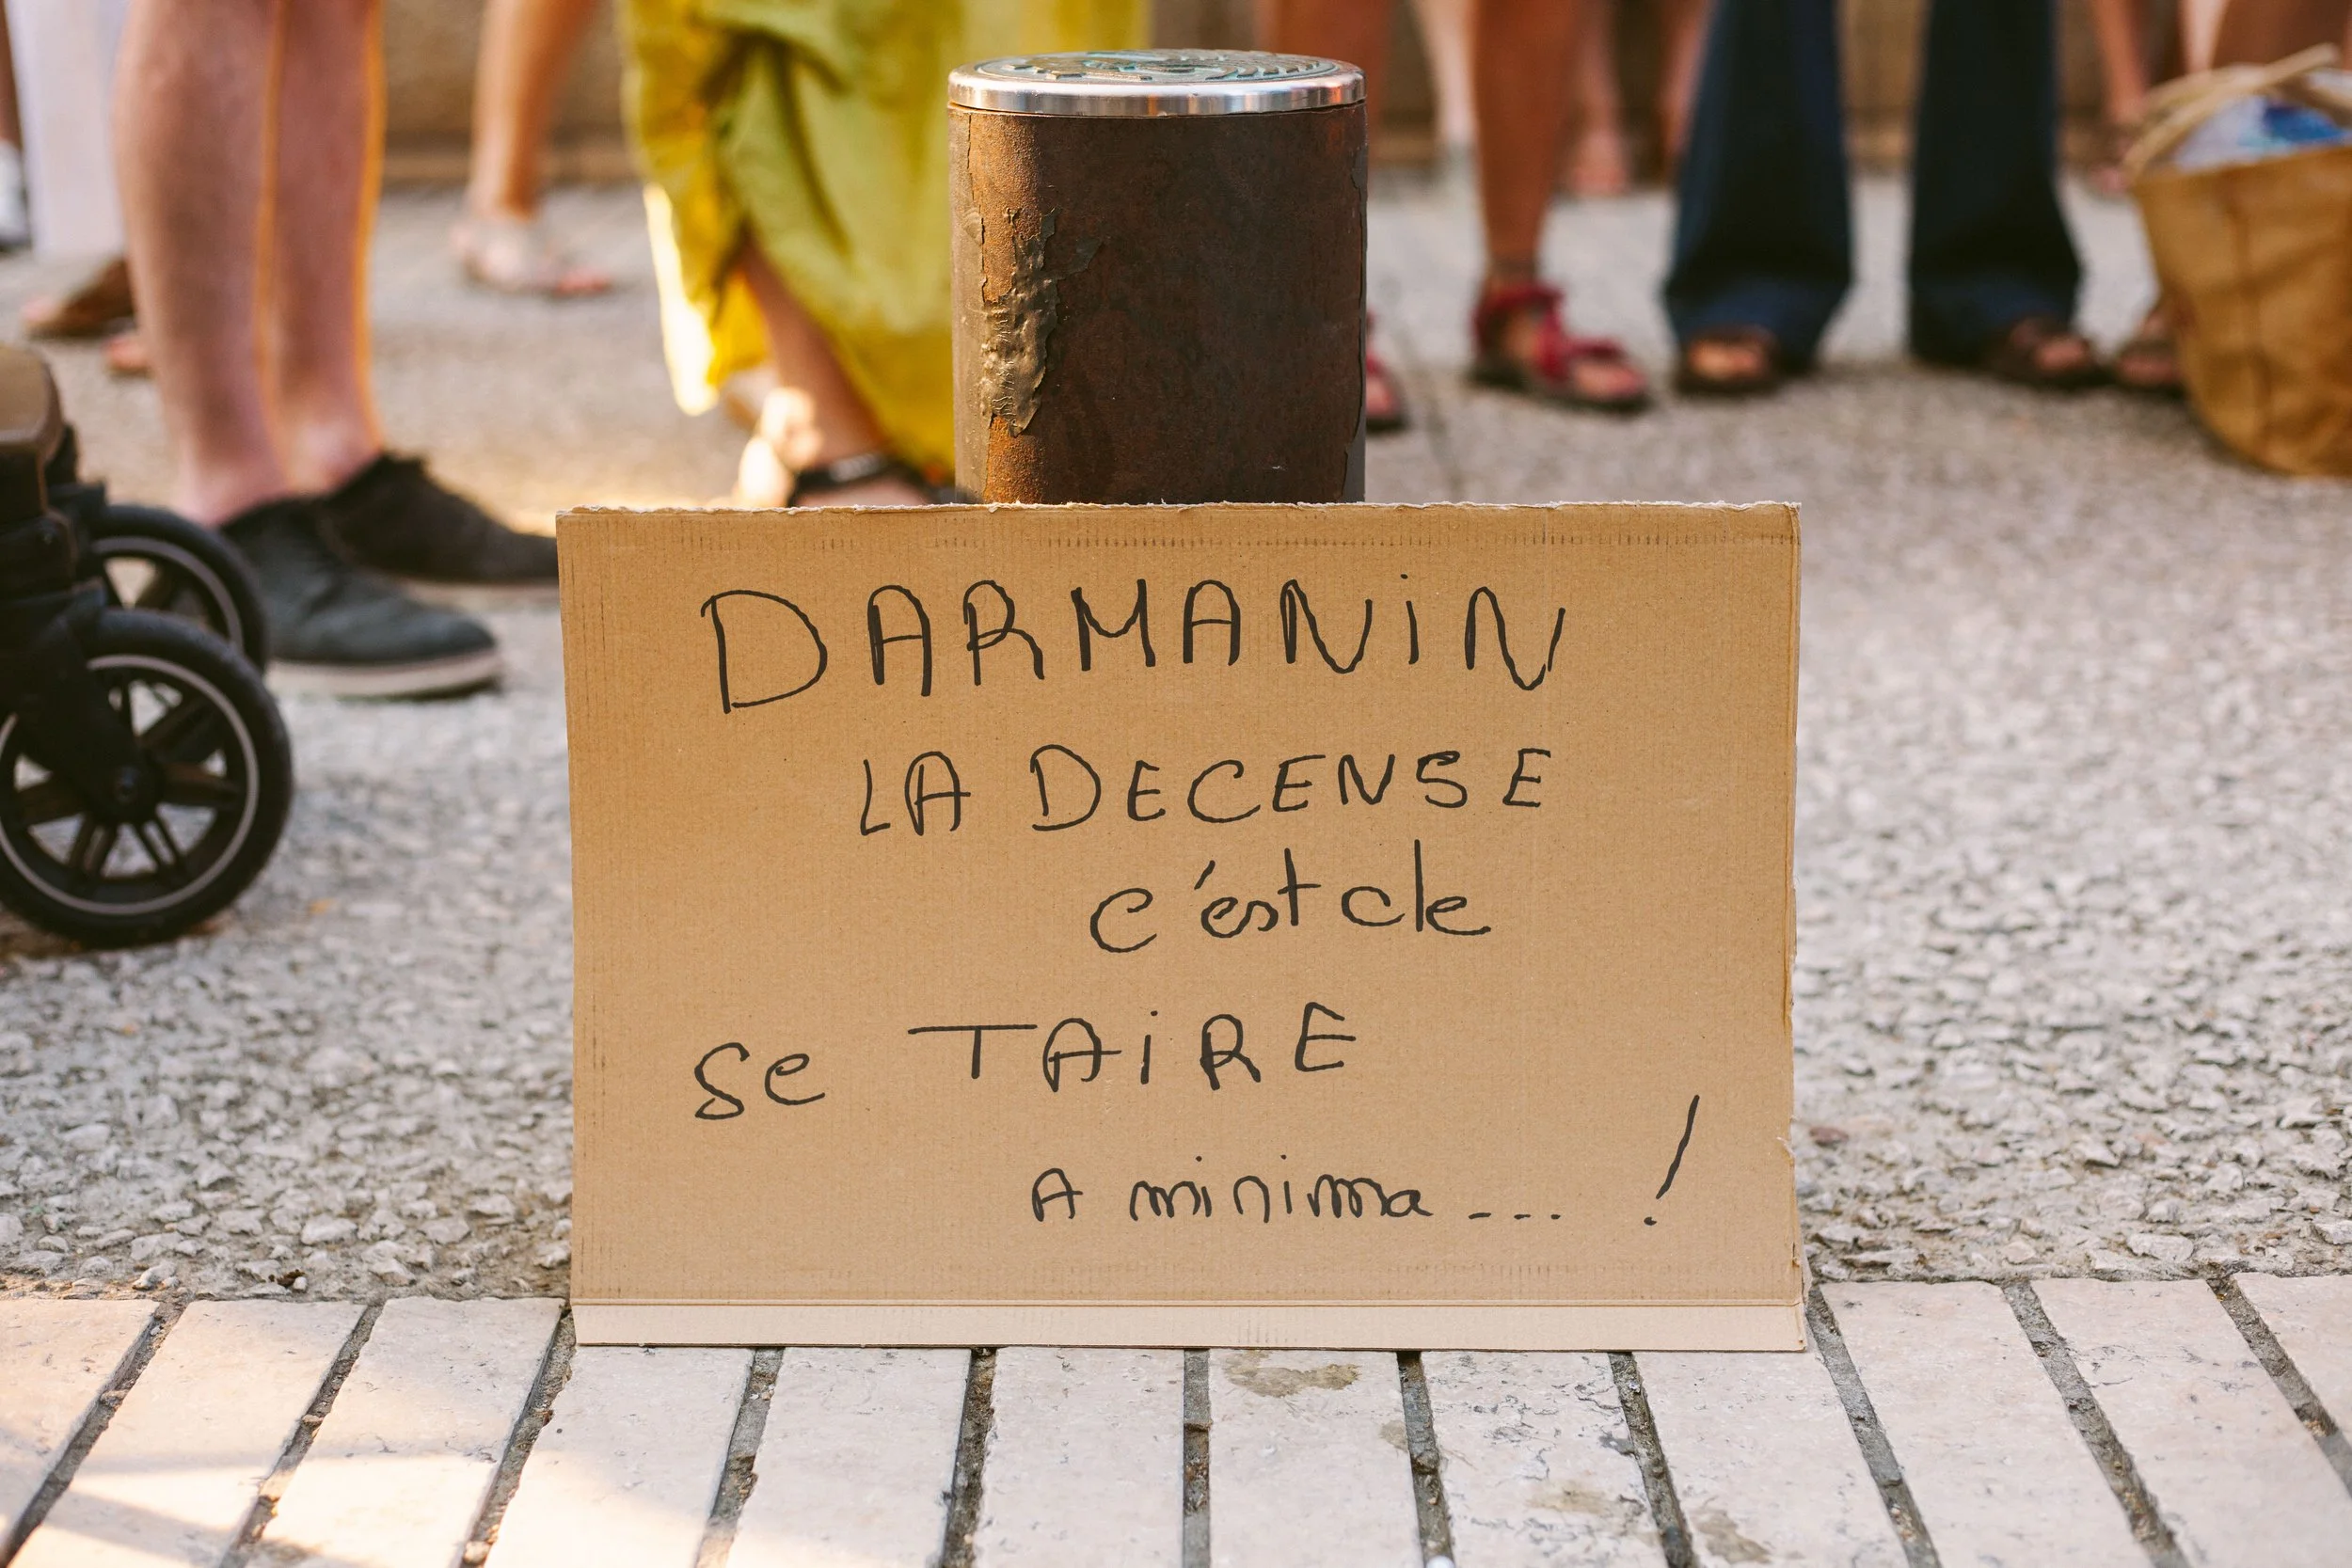 DARMANiN
LA DECENSE
c'est de
Se TAiRE
A minima ... !